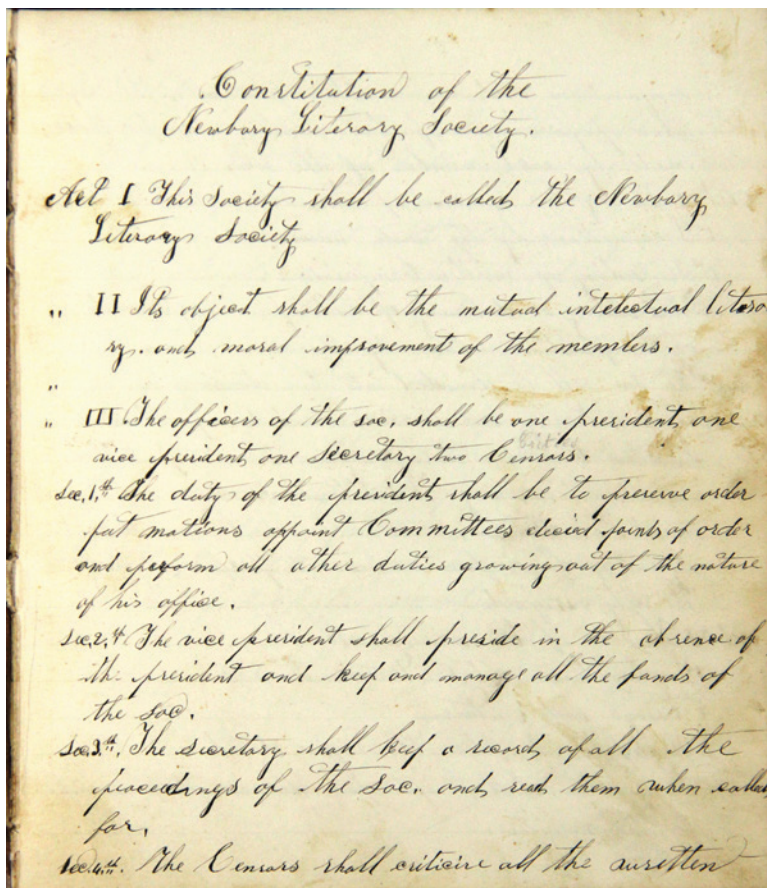 Constitution of the
Newbary Literary Society.
Act I This Society shall be called the Newbary
Literary Society
" II Its object shall be the mutual intelectual litera
ry. and moral improvement of the members.
"
" III The officers of the soc. shall be one president one
vice president one secretary two Censors.
Sec. 1.th The duty of the president shall be to preserve order
put motions appoint Committees decid points of order
and perform all other duties growing out of the nature
of his office.
Sec. 2.th The vice president shall preside in the absence of
the president and keep and manage all the funds of
the soc.
Sec. 3.th. The secretary shall keep a record of all the
proceedings of the soc. and read them when called
for.
Sec. 4.th. The Censors shall criticise all the written